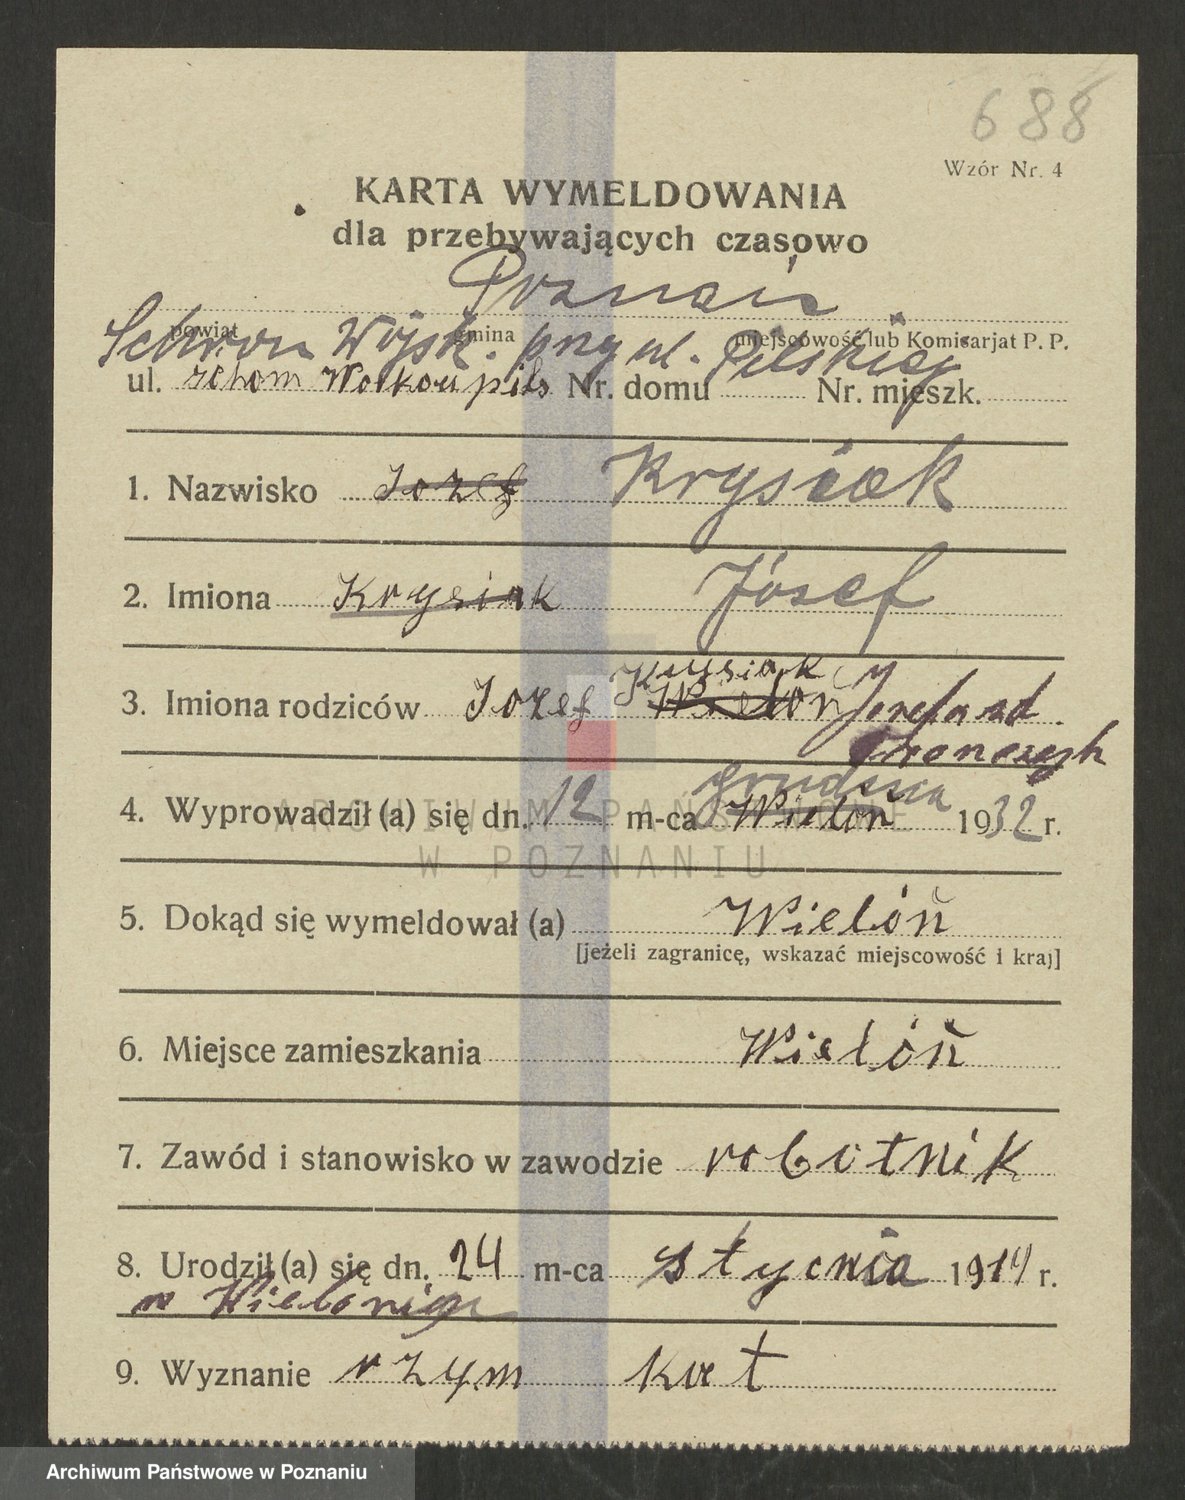 688
Wzór Nr. 4
KARTA WYMELDOWANIA
dla przebywających czasowo
Poznań
powiat gmina miejscowość lub Komisarjat P. P.
Schron Wojsk. przy ul. Pilskiej
ul. schom Nr. domu Nr. mieszk.
1. Nazwisko Jozef Krysiak
2. Imiona Krysiak Józef
Krysiak
3. Imiona rodziców Jozef Wielóń Jozefa zd.
Franczach
grudnia
4. Wyprowadził (a) się dn. 12 m-ca Wielóń 1932 r.
ARCHIWUM PAŃSTWOWE
W POZNANIU
5. Dokąd się wymeldował (a) Wielóń
[jeżeli zagranicę, wskazać miejscowość i kraj]
6. Miejsce zamieszkania Wielóń
7. Zawód i stanowisko w zawodzie robotnik
8. Urodził (a) się dn. 24 m-ca stycnia 1914 r.
w Wieloniu
9. Wyznanie rzym kat
Archiwum Państwowe w Poznaniu